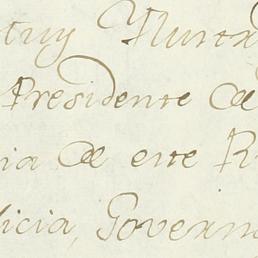 muy Illustr
Presidente de
ia de este R
licia, Govern